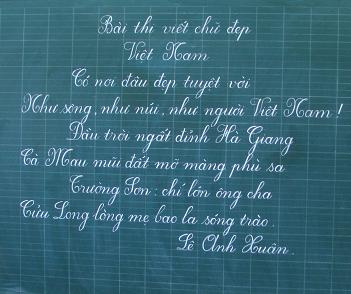 Bài thi viết chữ đẹp
Việt Nam
Có nơi đâu đẹp tuyệt vời
Như sông, như núi, như người Việt Nam!
Đầu trời ngất đỉnh Hà Giang
Cà Mau mũi đất mỡ màng phù sa
Trường Sơn: chí lớn ông cha
Cửu Long lòng mẹ bao la sóng trào.
Lê Anh Xuân.